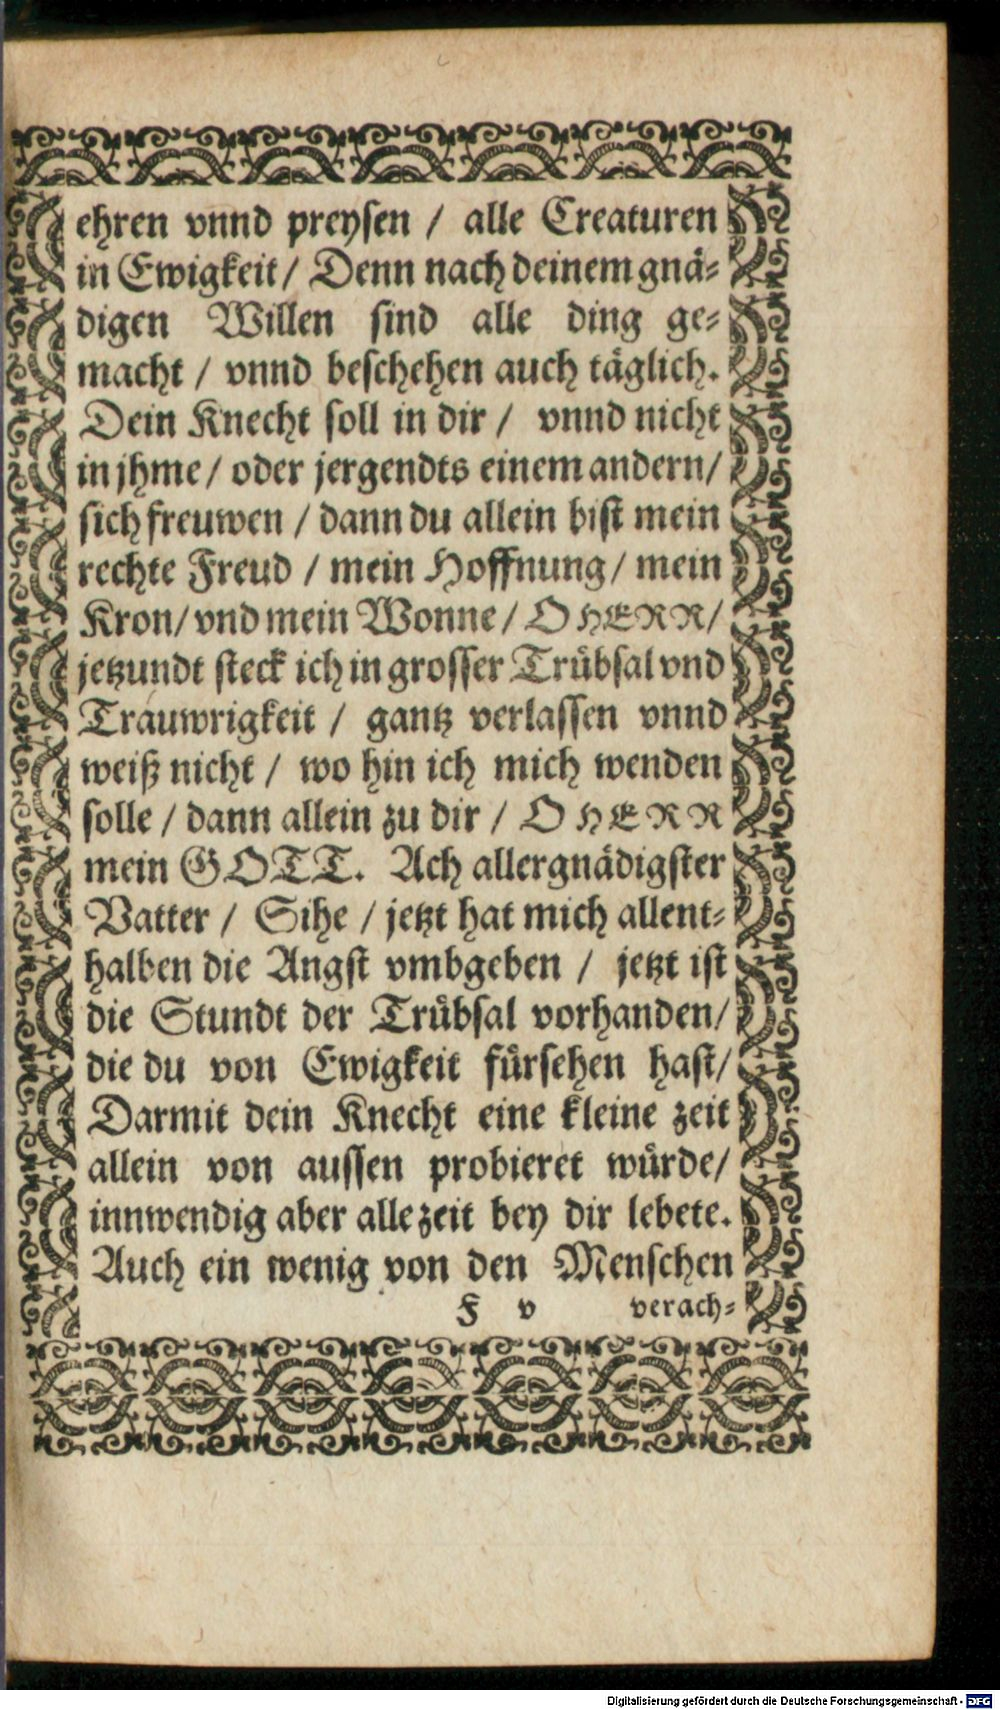 ehren vnnd preysen / alle Creaturen
in Ewigkeit / Denn nach deinem gnä⸗
digen Willen sind alle ding ge⸗
macht / vnnd beschehen auch täglich.
Dein Knecht soll in dir / vnnd nicht
in jhme / oder jergendts einem andern /
sich freuwen / dann du allein bist mein
rechte Freud / mein Hoffnung / mein
Kron / vnd mein Wonne / O HERR /
jetzundt steck ich in grosser Trübsal vnd
Trauwrigkeit / gantz verlassen vnnd
weiß nicht / wo hin ich mich wenden
solle / dann allein zu dir / O HERR
mein GOTT. Ach allergnädigster
Vatter / Sihe / jetzt hat mich allent⸗
halben die Angst vmbgeben / jetzt ist
die Stundt der Trübsal vorhanden /
die du von Ewigkeit fürsehen hast /
Darmit dein Knecht eine kleine zeit
allein von aussen probieret würde /
innwendig aber alle zeit bey dir lebete.
Auch ein wenig von den Menschen
F v verach⸗
Digitalisierung gefördert durch die Deutsche Forschungsgemeinschaft - DFG